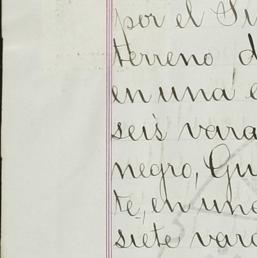 por el Su
terreno d
en una e
seis vara
negro, Gu
te, en una
siete varo